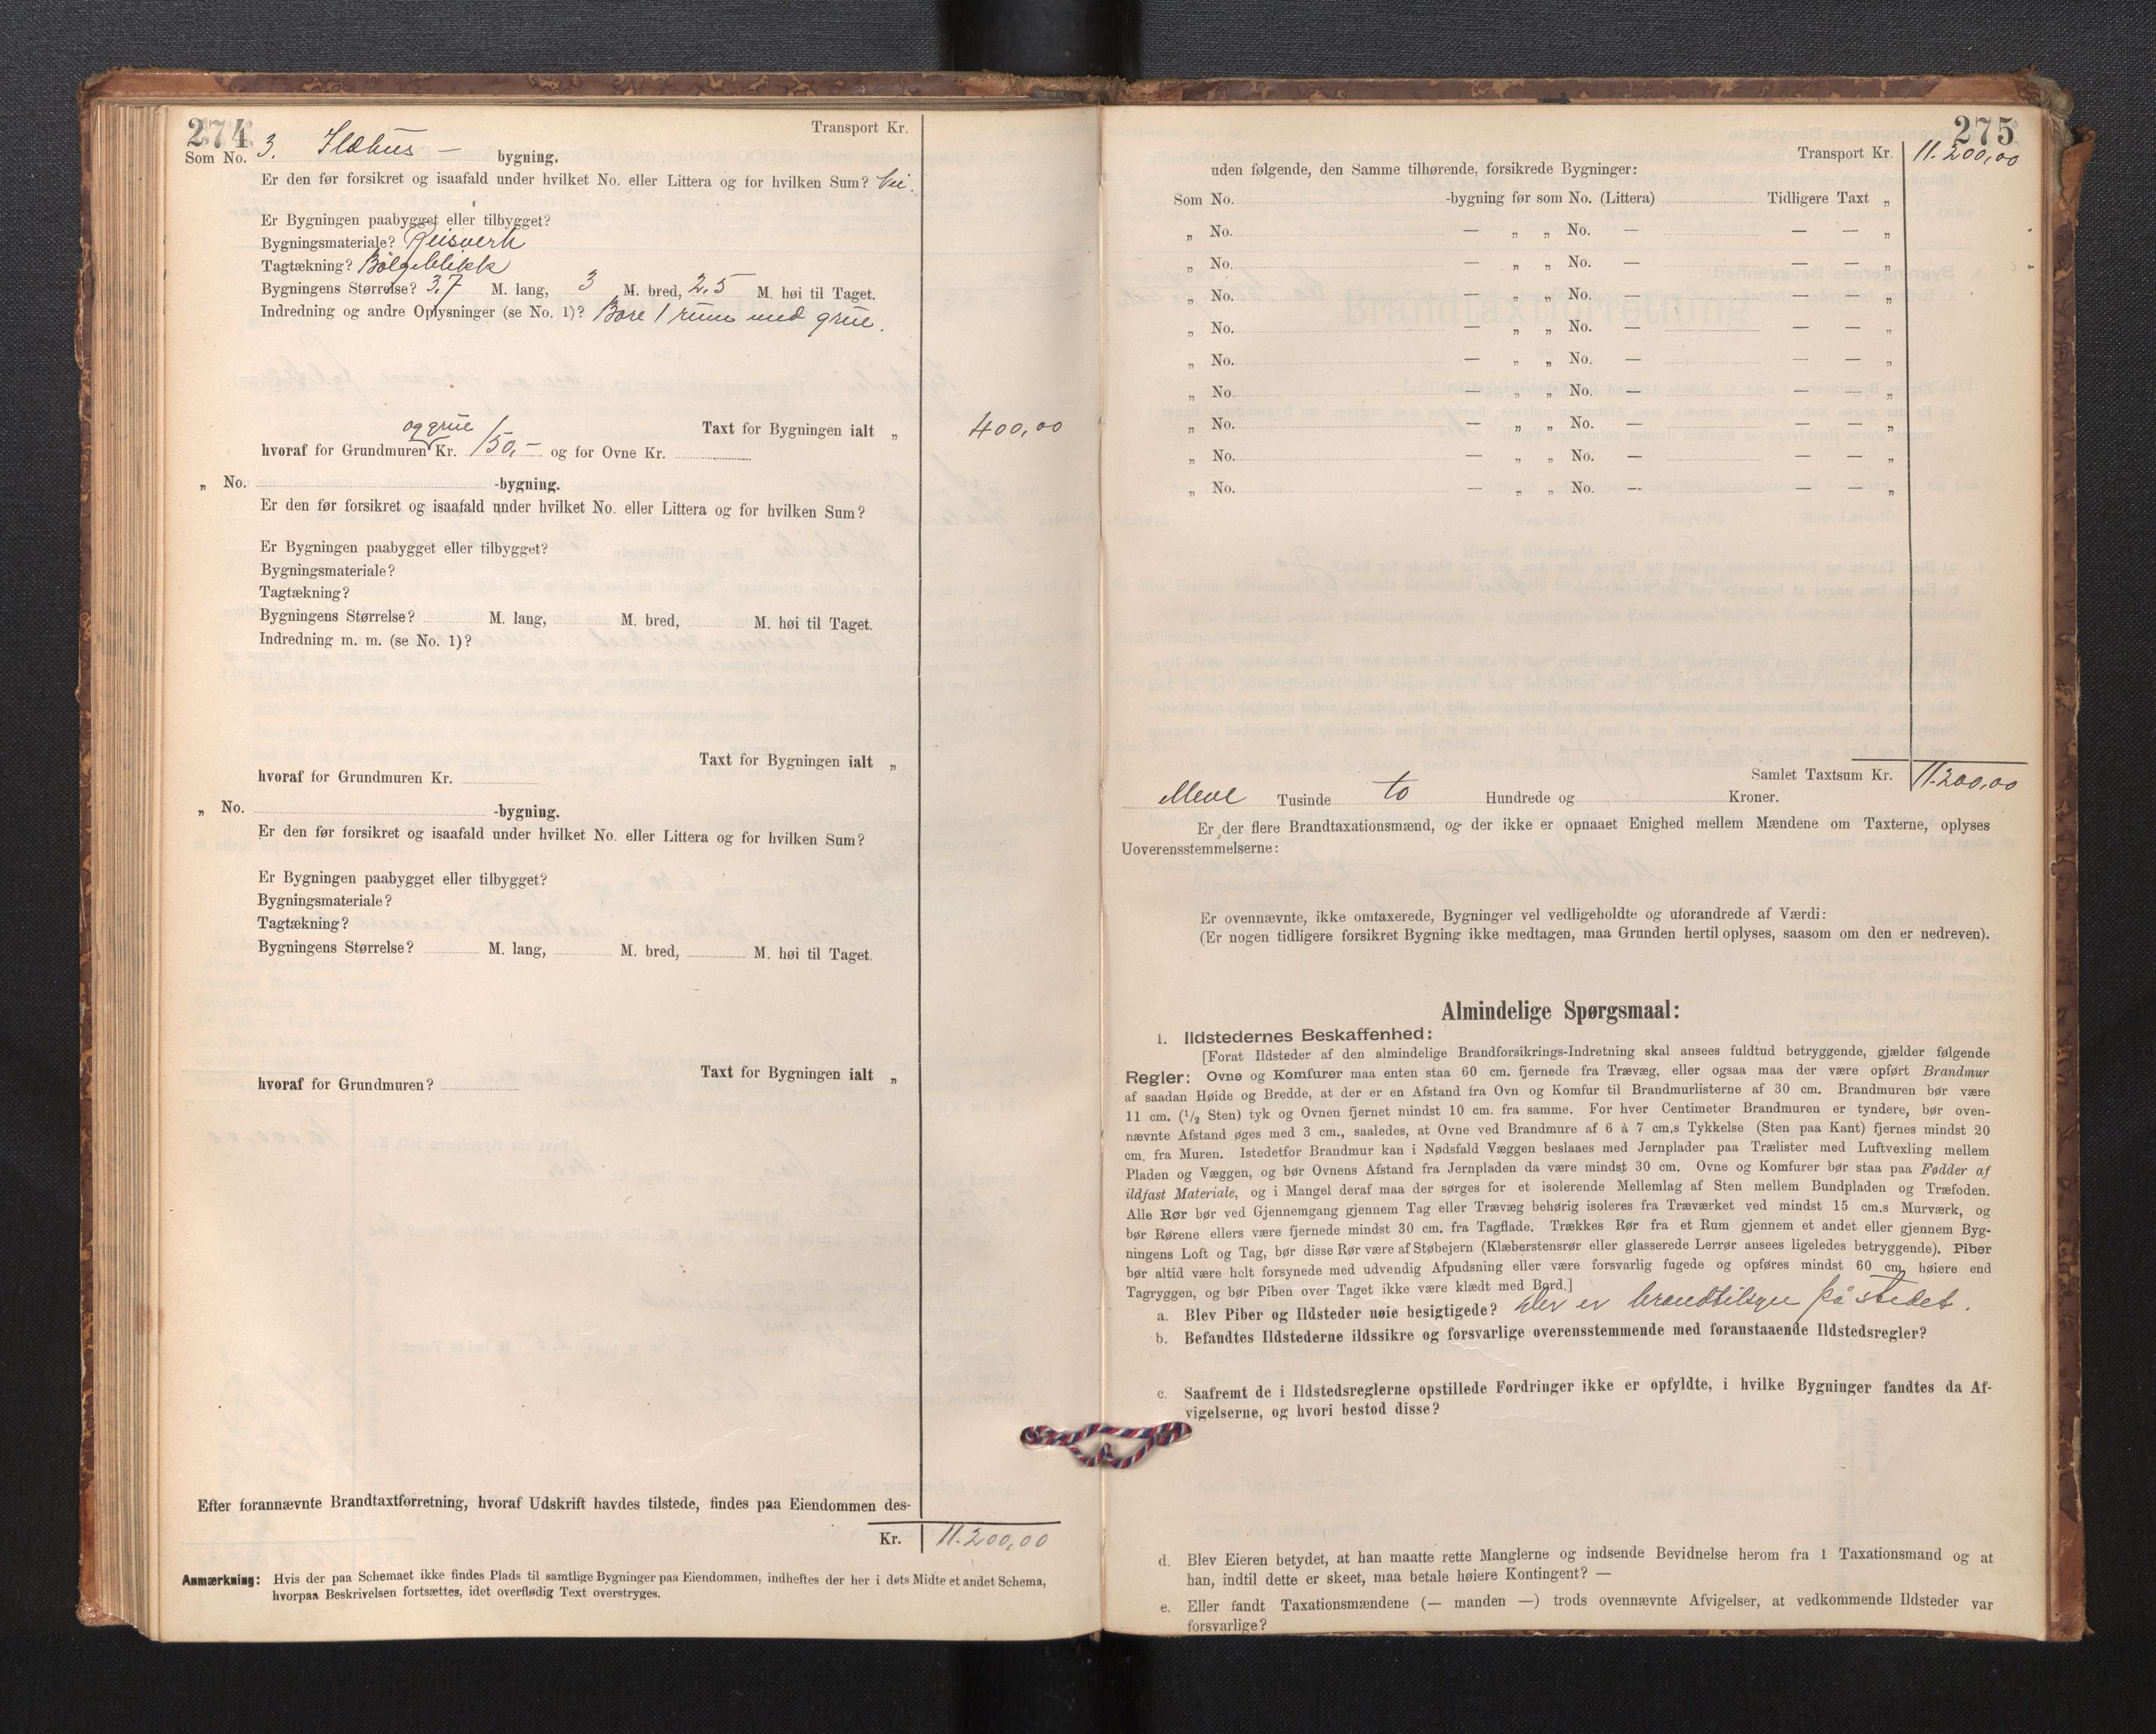 274
Transport Kr.
Som No. 3. Ildhus — bygning.
Er den før forsikret og isaafald under hvilket No. eller Littera og for hvilken Sum? Nei.
Er Bygningen paabygget eller tilbygget?
Bygningsmateriale? Reisverk
Tagtækning? Bölgeblikk
Bygningens Størrelse? 3,7 M. lang, 3 M. bred, 2,5 M. høi til Taget.
Indredning og andre Oplysninger (se No. 1)? Bare 1 rum med grue.
og grue
Taxt for Bygningen ialt „ 400,00
hvoraf for Grundmuren Kr. 150,— og for Ovne Kr.
„ No. -bygning.
Er den før forsikret og isaafald under hvilket No. eller Littera og for hvilken Sum?
Er Bygningen paabygget eller tilbygget?
Bygningsmateriale?
Tagtækning?
Bygningens Størrelse? M. lang, M. bred, M. høi til Taget.
Indredning m. m. (se No. 1)?
Taxt for Bygningen ialt „
hvoraf for Grundmuren Kr.
„ No. -bygning.
Er den før forsikret og isaafald under hvilket No. eller Littera og for hvilken Sum?
Er Bygningen paabygget eller tilbygget?
Bygningsmateriale?
Tagtækning?
Bygningens Størrelse? M. lang, M. bred, M. høi til Taget.
Taxt for Bygningen ialt „
hvoraf for Grundmuren?
Efter forannævnte Brandtaxtforretning, hvoraf Udskrift havdes tilstede, findes paa Eiendommen des-
Kr. 11.200,00
Anmærkning: Hvis der paa Schemaet ikke findes Plads til samtlige Bygninger paa Eiendommen, indheftes der her i dets Midte et andet Schema,
hvorpaa Beskrivelsen fortsættes, idet overflødig Text overstryges.
275
Transport Kr. 11.200,00
uden følgende, den Samme tilhørende, forsikrede Bygninger:
Som No. -bygning før som No. (Littera) Tidligere Taxt „
„ No. — „ „ No. — — — „
„ No. — „ „ No. — — — „
„ No. — „ „ No. — — — „
„ No. — „ „ No. — — — „
„ No. — „ „ No. — — — „
„ No. — „ „ No. — — — „
„ No. — „ „ No. — — — „
„ No. — „ „ No. — — — „
„ No. — „ „ No. — — — „
Samlet Taxtsum Kr. 11.200,00
elleve Tusinde to Hundrede og Kroner.
Er der flere Brandtaxationsmænd, og der ikke er opnaaet Enighed mellem Mændene om Taxterne, oplyses
Uoverensstemmelserne:
Er ovennævnte, ikke omtaxerede, Bygninger vel vedligeholdte og uforandrede af Værdi:
(Er nogen tidligere forsikret Bygning ikke medtagen, maa Grunden hertil oplyses, saasom om den er nedreven).
Almindelige Spørgsmaal:
1. Ildstedernes Beskaffenhed:
[Forat Ildsteder af den almindelige Brandforsikrings-Indretning skal ansees fuldtud betryggende, gjælder følgende
Regler: Ovne og Komfurer maa enten staa 60 cm. fjernede fra Trævæg, eller ogsaa maa der være opført Brandmur
af saadan Høide og Bredde, at der er en Afstand fra Ovn og Komfur til Brandmurlisterne af 30 cm. Brandmuren bør være
11 cm. (1/2 Sten) tyk og Ovnen fjernet mindst 10 cm. fra samme. For hver Centimeter Brandmuren er tyndere, bør oven-
nævnte Afstand øges med 3 cm., saaledes, at Ovne ved Brandmure af 6 à 7 cm.s Tykkelse (Sten paa Kant) fjernes mindst 20
cm. fra Muren. Istedetfor Brandmur kan i Nødsfald Væggen beslaaes med Jernplader paa Trælister med Luftvexling mellem
Pladen og Væggen, og bør Ovnens Afstand fra Jernpladen da være mindst 30 cm. Ovne og Komfurer bør staa paa Fødder af
ildfast Materiale, og i Mangel deraf maa der sørges for et isolerende Mellemlag af Sten mellem Bundpladen og Træfoden.
Alle Rør bør ved Gjennemgang gjennem Tag eller Trævæg behørig isoleres fra Træværket ved mindst 15 cm.s Murværk, og
bør Rørene ellers være fjernede mindst 30 cm. fra Tagflade. Trækkes Rør fra et Rum gjennem et andet eller gjennem Byg-
ningens Loft og Tag, bør disse Rør være af Støbejern (Klæberstensrør eller glasserede Lerrør ansees ligeledes betryggende). Piber
bør altid være helt forsynede med udvendig Afpudsning eller være forsvarlig fugede og opføres mindst 60 cm. høiere end
Tagryggen, og bør Piben over Taget ikke være klædt med Bord.]
a. Blev Piber og Ildsteder nøie besigtigede? Der er brandtilsyn på stedet.
b. Befandtes Ildstederne ildssikre og forsvarlige overensstemmende med foranstaaende Ildstedsregler?
c. Saafremt de i Ildstedsreglerne opstillede Fordringer ikke er opfyldte, i hvilke Bygninger fandtes da Af-
vigelserne, og hvori bestod disse?
d. Blev Eieren betydet, at han maatte rette Manglerne og indsende Bevidnelse herom fra 1 Taxationsmand og at
han, indtil dette er skeet, maa betale høiere Kontingent? —
e. Eller fandt Taxationsmændene (— manden —) trods ovennævnte Afvigelser, at vedkommende Ildsteder var
forsvarlige?